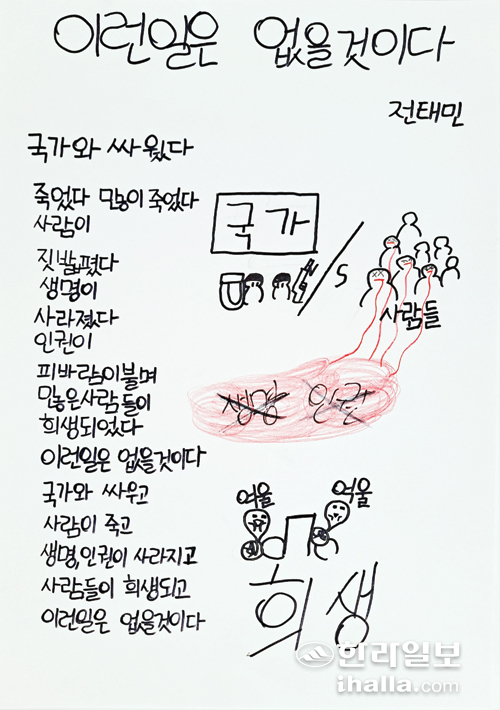 이런일은 없을것이다
전태민
국가와 싸웠다
죽었다 많이 죽었다
사람이
짓밟폈다
생명이
사라졌다
인권이
피바람이불며
많은사람들이
희생되었다
이런일은 없을것이다
국가와 싸우고
사람이 죽고
생명,인권이 사라지고
사람들이 희생되고
이런일은 없을것이다
국가
VS
사람들
생명 인권
억울 억울
희생
한라일보
ihalla.com